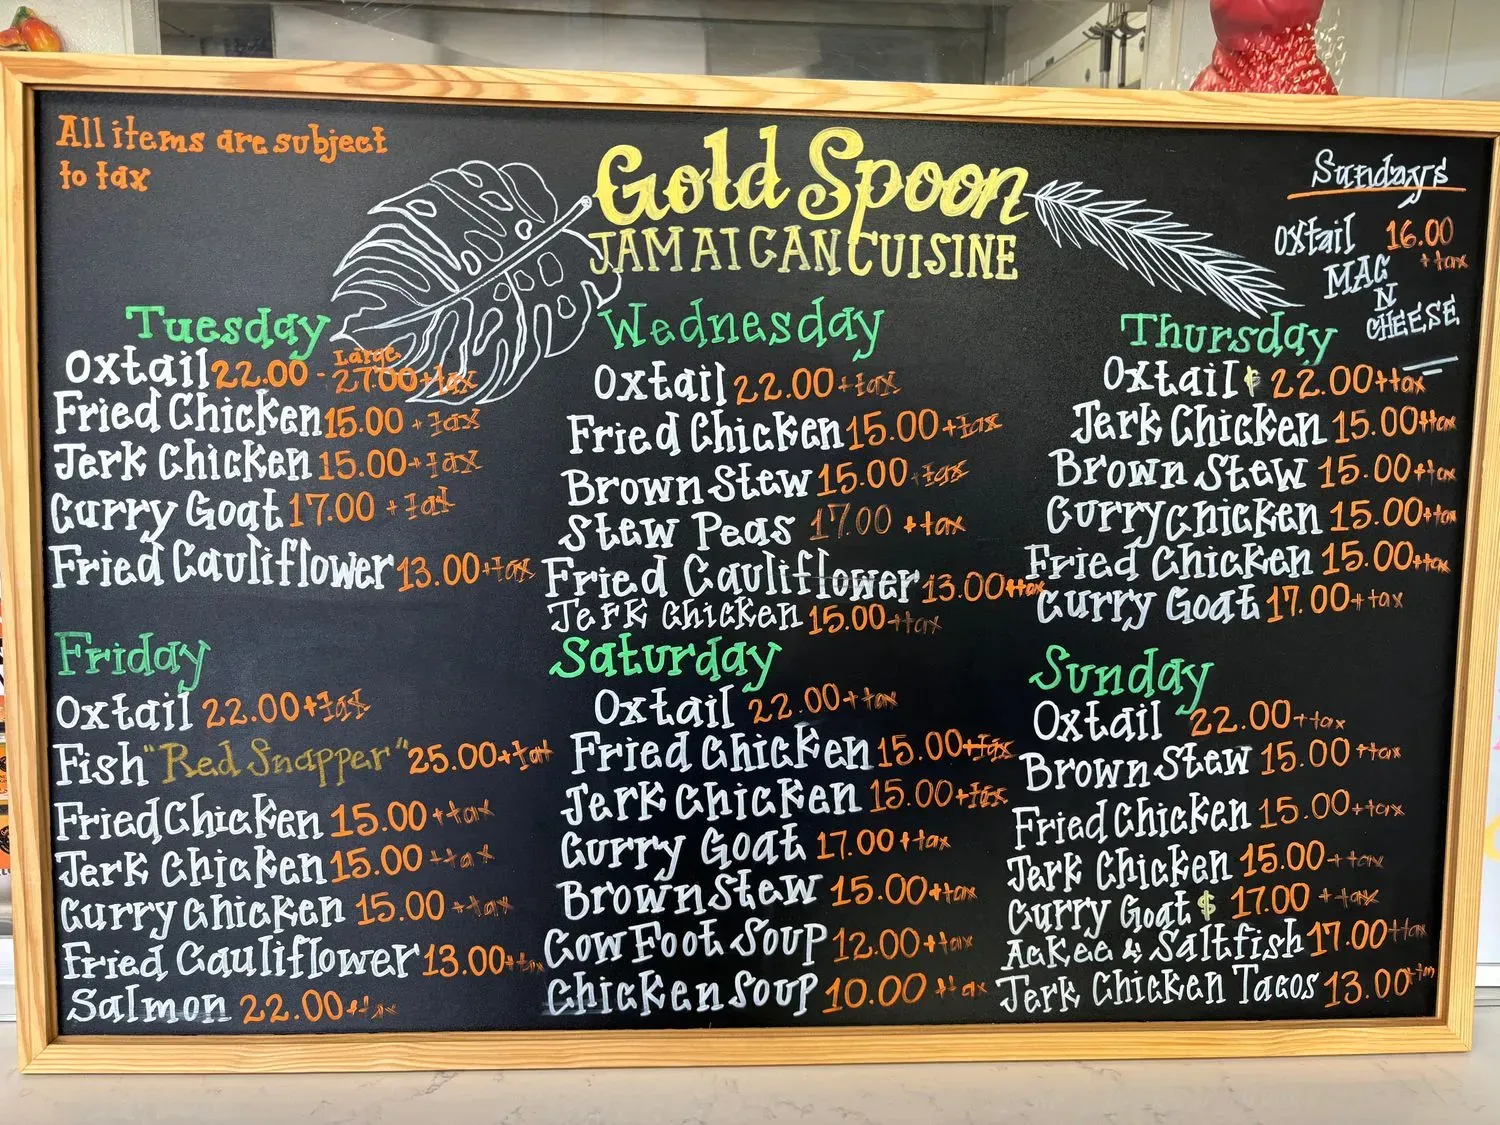 All items are subject
to tax
Gold Spoon
JAMAICAN CUISINE
Sundays
Oxtail 16.00
+tax
MAC
N
CHEESE
Tuesday
Oxtail 22.00 - Large 27.00+tax
Fried Chicken 15.00 +tax
Jerk Chicken 15.00+tax
Curry Goat 17.00 +tax
Fried Cauliflower 13.00+tax
Wednesday
Oxtail 22.00+tax
Fried Chicken 15.00+tax
Brown Stew 15.00+tax
Stew Peas 17.00 +tax
Fried Cauliflower 13.00+tax
Jerk Chicken 15.00+tax
Thursday
Oxtail $ 22.00+tax
Jerk Chicken 15.00+tax
Brown Stew 15.00+tax
Curry Chicken 15.00+tax
Fried Chicken 15.00+tax
Curry Goat 17.00+tax
Friday
Oxtail 22.00+tax
Fish "Red Snapper" 25.00+tax
Fried Chicken 15.00+tax
Jerk Chicken 15.00+tax
Curry Chicken 15.00+tax
Fried Cauliflower 13.00+tax
Salmon 22.00+tax
Saturday
Oxtail 22.00+tax
Fried Chicken 15.00+tax
Jerk Chicken 15.00+tax
Curry Goat 17.00+tax
Brown Stew 15.00+tax
Cow Foot Soup 12.00+tax
Chicken Soup 10.00 +tax
Sunday
Oxtail 22.00+tax
Brown Stew 15.00 +tax
Fried Chicken 15.00+tax
Jerk Chicken 15.00+tax
Curry Goat $ 17.00 +tax
Ackee & Saltfish 17.00+tax
Jerk Chicken Tacos 13.00+tax